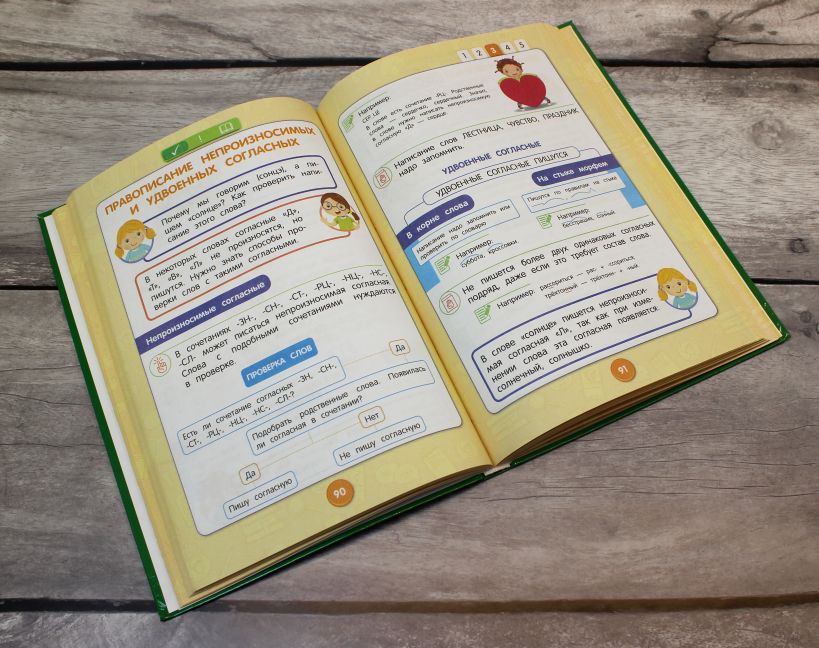 ПРАВОПИСАНИЕ НЕПРОИЗНОСИМЫХ
И УДВОЕННЫХ СОГЛАСНЫХ
Почему мы говорим [сонцэ], а пи-
шем «солнце»? Как проверить напи-
сание этого слова?
В некоторых словах согласные «Д»,
«Т», «В», «Л» не произносятся, но
пишутся. Нужно знать способы про-
верки слов с такими согласными.
Непроизносимые согласные
В сочетаниях -ЗН-, -СН-, -СТ-, -РЦ-, -НЦ-, -НС-,
-СЛ- может писаться непроизносимая согласная.
Слова с подобными сочетаниями нуждаются
в проверке.
ПРОВЕРКА СЛОВ
Есть ли сочетание согласных -ЗН, -СН-,
-СТ-, -РЦ-, -НЦ-, -НС-, -СЛ-?
Да
Подобрать родственные слова. Появилась
ли согласная в сочетании?
Нет
Да
Не пишу согласную
Пишу согласную
90
1 2 3 4 5
Например:
СЕР ЦЕ
В слове есть сочетание -РЦ-. Родственные
слова — сердечко, сердечный. Значит,
в слове нужно написать непроизносимую
согласную «Д» — сердце
Написание слов ЛЕСТНИЦА, ЧУВСТВО, ПРАЗДНИК
надо запомнить.
УДВОЕННЫЕ СОГЛАСНЫЕ
УДВОЕННЫЕ СОГЛАСНЫЕ ПИШУТСЯ
В корне слова
На стыке морфем
Написание надо запомнить или
проверить по словарю
Пишутся по правилам на стыке
Например:
суббота, кроссовки
Например:
бесстрашие, сонный
Не пишется более двух одинаковых согласных
подряд, даже если это требует состав слова.
Например: рассориться — рас + ссориться
трёхтонный — трёхтонн + ный
В слове «солнце» пишется непроизноси-
мая согласная «Л», так как при изме-
нении слова эта согласная появляется:
солнечный, солнышко.
91